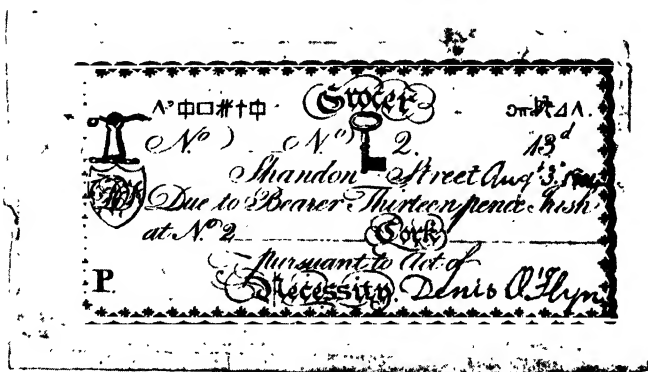 Grocer
No ) No ) 2. 13d
Shandon Street Aug
Due to Bearer Thirteen pence Irish
at No 2 Cork
P. pursuant to Act of
Necessity. Denis O'Flyn